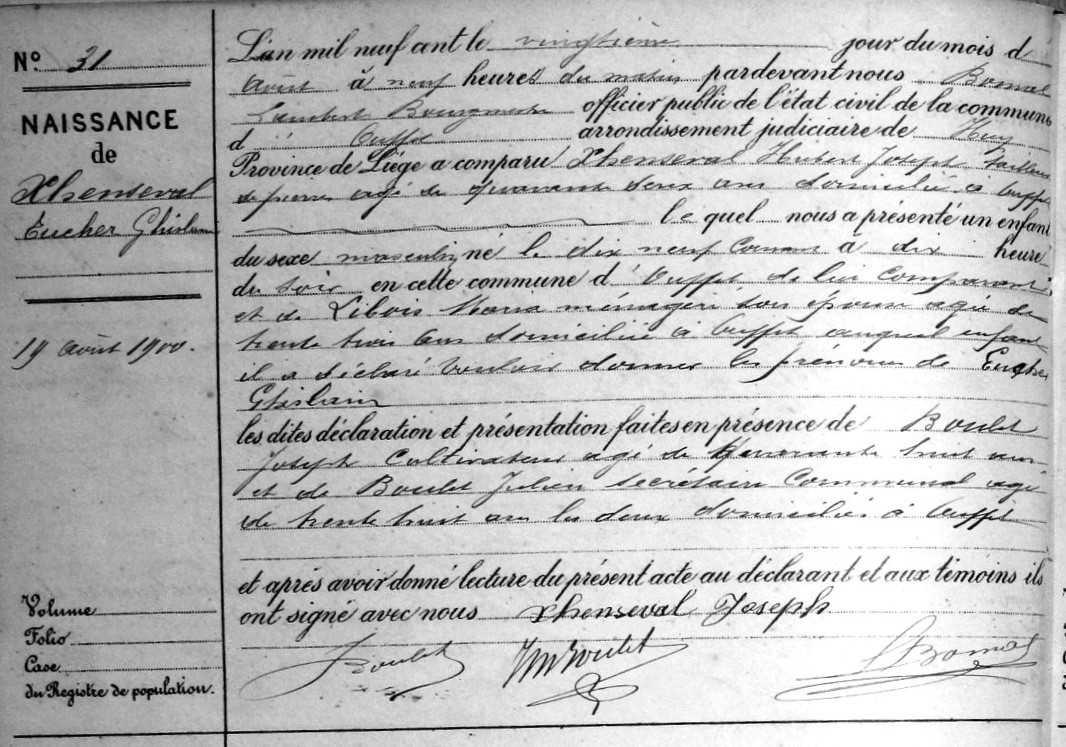 N° 31
NAISSANCE
de
Xhenseval
Eucher Ghislain
19 août 1900.
Volume
Folio
Case
du Registre de population.
L'an mil neuf cent le vingtième jour du mois d
août à neuf heures du matin pardevant nous Bomal
Lambert Bourgmestre officier public de l'état civil de la commune
d' Ouffet arrondissement judiciaire de Huy
Province de Liége a comparu Xhenseval Hubert Joseph tailleur
de pierres agé de quarante deux ans domicilié à Ouffet
le quel nous a présenté un enfant
du sexe masculin, né le dix neuf courant à dix heure
du soir en cette commune d' Ouffet de lui comparant
et de Libois Maria ménagère son épouse agée de
trente trois ans domiciliée à Ouffet auquel enfant
il a déclaré vouloir donner les prénoms de Eucher
Ghislain
les dites déclaration et présentation faites en présence de Boulet
Joseph Cultivateur agé de huit ans
et de Boulet Julien Secrétaire Communal agé
de trente huit ans les deux domiciliés à Ouffet
et après avoir donné lecture du présent acte au déclarant et aux témoins ils
ont signé avec nous Xhenseval Joseph
J Boulet Boulet L Bomal